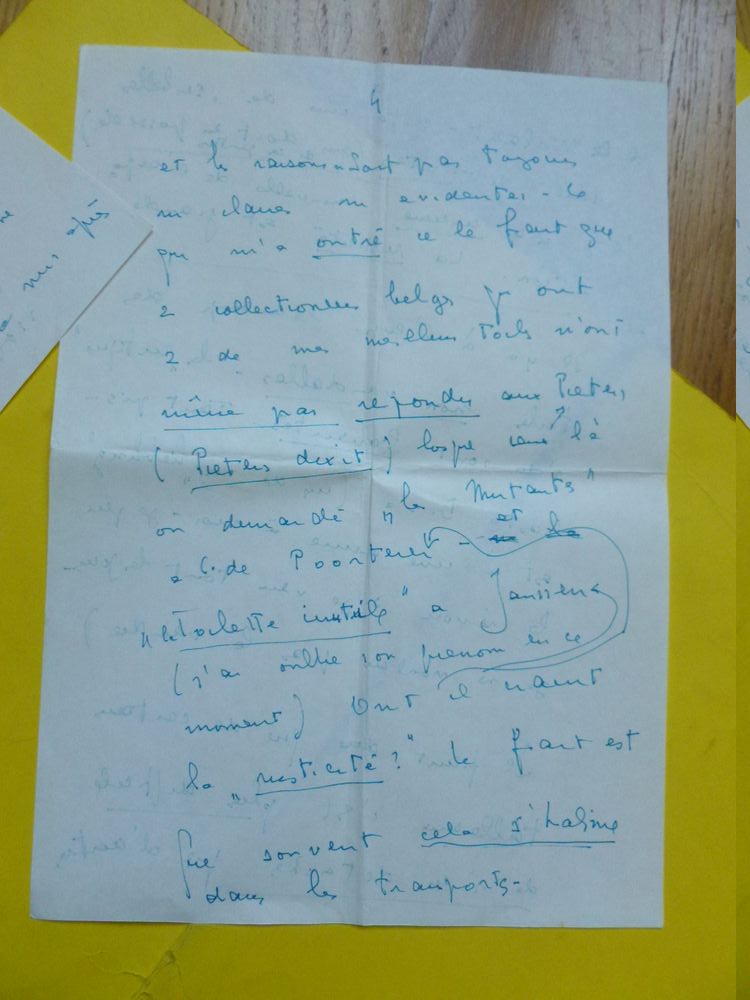 4
et les raisons n sont pas toujours
ni claires ni evidentes - Ce
qui m'a outré c le fait que
2 collectionneurs belges qui ont
2 de mes meilleurs Toiles n'ont
même pas repondu aux Pieters
(Pieters dixit) lorsque ceux là
on demandé "les Mutants"
a C. de Poorterer - et
"la Toilette inutile" a Janssens
(j'ai oublie son prenom en ce
moment) Ont il craint
la "rusticité?" le fait est
que souvent cela s'habime
dans les transports -
nus après